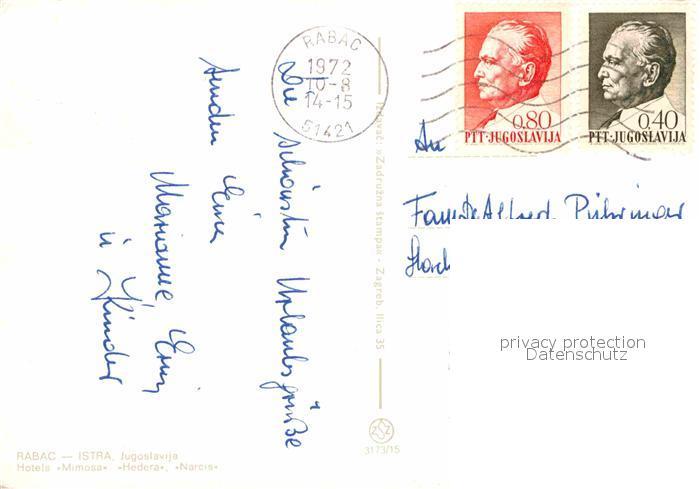 RABAC
1972
10-8
14-15
51421
0.80
PTT-JUGOSLAVIJA
0.40
PTT-JUGOSLAVIJA
Die schönsten Urlaubsgrüße
senden Eure
Marianne, Erni
u Kinder
An
Alfred
privacy protection
Datenschutz
Izdavač: »Zadružna štampa« - Zagreb, Ilica 35
3173/15
RABAC — ISTRA, Jugoslavija
Hotels »Mimosa« »Hedera«, »Narcis«